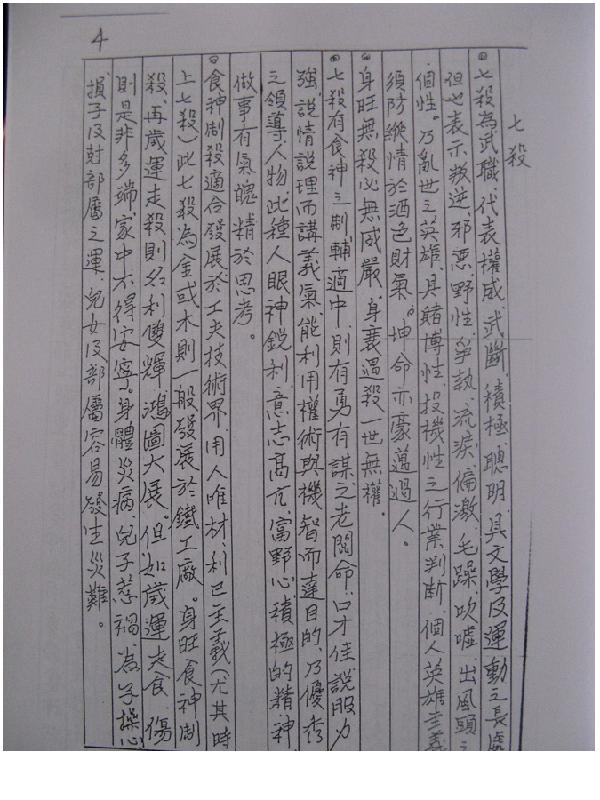 4
七殺
⊙七殺為武職、代表權威、武斷、積極、聰明、具文學及運動之長處
但也表示叛逆、邪惡、野性、爭執、流淚、偏激、毛躁、吹噓、出風頭之
個性。乃亂世之英雄、具賭博性、投機性之行業判斷、個人英雄主義
須防縱情於酒色財氣。坤命亦豪邁過人。
身旺無殺必無威嚴、身衰過殺一世無權。
七殺有食神之制、輔適中、則有勇有謀之老闆命、口才佳說服力
強、說情說理而講義氣、能利用權術與機智而達目的、乃優秀
之領導人物、此種人眼神銳利、意志高亢、富野心、積極的精神
做事有氣魄、精於思考。
食神制殺適合發展於工夫技術界、用人唯材、利己主義(尤其時
上七殺)此七殺為金或木則一般發展於鐵工廠。身旺食神制
殺、再歲運走殺則名利雙輝、鴻圖大展。但如歲運走食、傷
則是非多端、家中不得安寧。身體災病、兒子惹禍、為子操心
損子及財部屬之運、兒女及部屬容易發生災難。